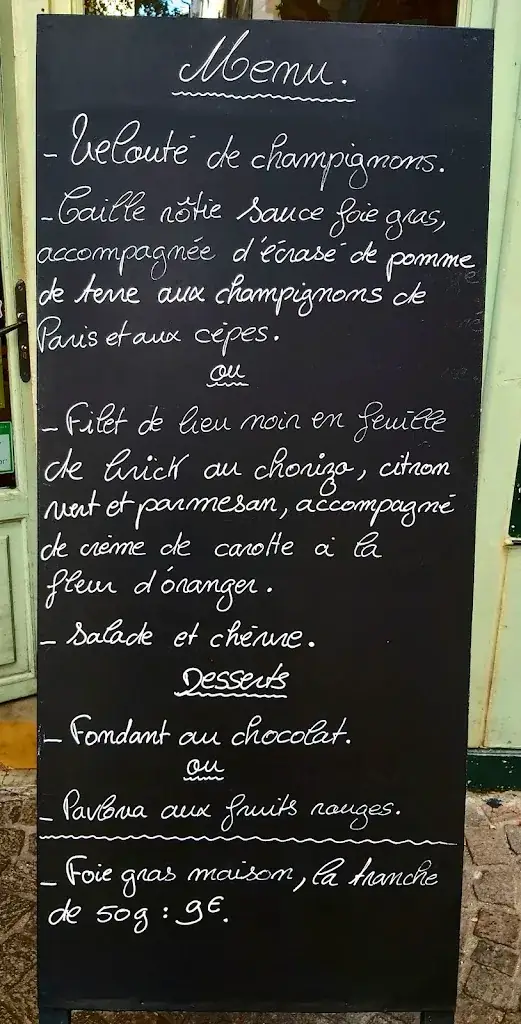 Menu.
- Velouté de champignons.
- Caille rôtie sauce foie gras,
accompagnée d'écrasé de pomme
de terre aux champignons de
Paris et aux cèpes.
ou
- Filet de lieu noir en feuille
de brick au chorizo, citron
vert et parmesan, accompagné
de crème de carotte à la
fleur d'oranger.
- Salade et chèvre.
Desserts
- Fondant au chocolat.
ou
- Pavlova aux fruits rouges.
- Foie gras maison, la tranche
de 50g : 9€.